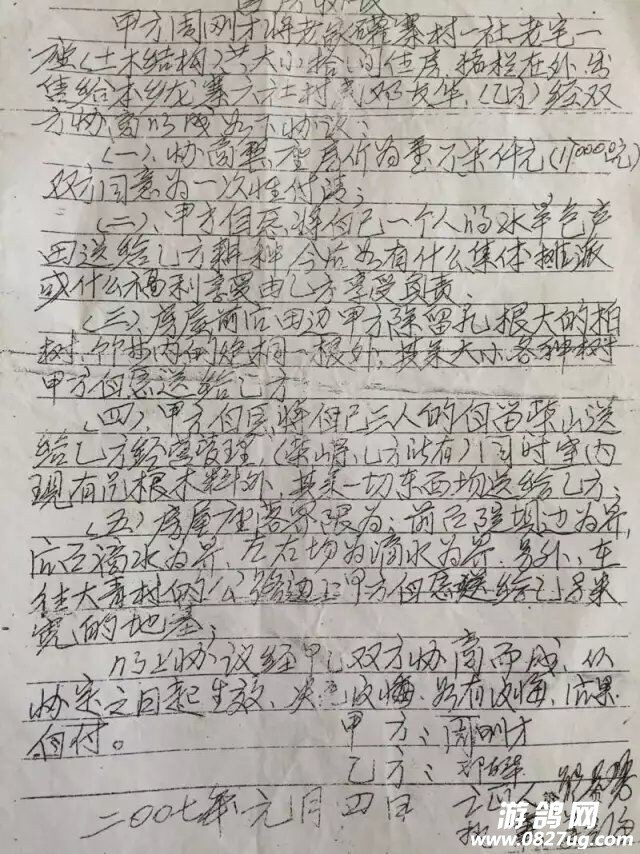 甲方周刚才将老家 寨村一社老宅一
座(土木结构)共大小拾间住房,猪栏在外,出
售给本乡龙寨六社村民邓友华,(乙方)经双
方协商以成如下协议:
(一)、协商整座房价为壹万柒仟元(17000.0元)
双方同意为一次性付清;
(二)、甲方自愿将自己一个人的水旱包产
田送给乙方耕种,今后如有什么集体摊派
或什么福利享受由乙方享受负责、
(三)、房屋前后田边甲方除留 根大的柏
树, 内的 一根外,其余大小各种树
甲方自愿送给乙方
(四)、甲方自愿将自己三人的自留柴山送
给乙方经营管理,( 乙方所有)同时室内
现有 根木料外,其余一切东西均送给乙方;
(五)房屋座落界限为:前已 坝边为界,
后已滴水为界,左右均为滴水为界,另外,在
往大 村的公路边上甲方自愿 给乙 米
宽的地基;
以上协议经甲乙双方协商而成,从
协定之日起生效,决 收悔、如有 悔,后果
自付。
甲方:周刚才
乙方:邓
二00七年元月四日
游鸽网
www.0827ug.com